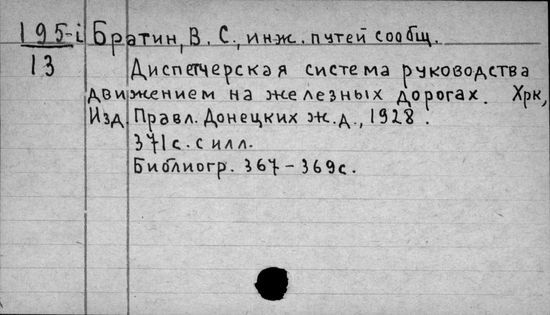 195-i Братин, В. С., инж. путей сообщ.
13 Диспетчерская система руководства
движением на железных дорогах. Хрк,
Изд. Правл. Донецких ж.д., 1928.
371 с. с илл.
Библиогр. 367-369 с.